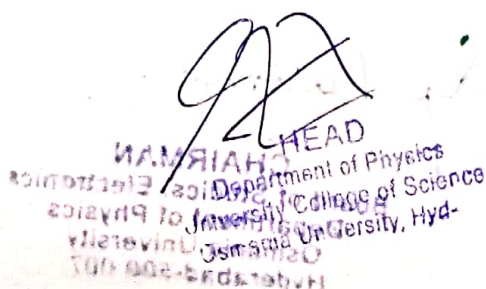 HEAD
Department of Physics
University College of Science
Osmania University, Hyd-
CHAIRMAN
Physics
Electronics
of Physics
University
Hyderabad-500 007